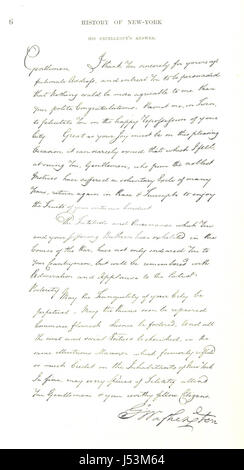 6 HISTORY OF NEW-YORK
HIS EXCELLENCY'S ANSWER.
Gentlemen I thank you sincerely for your
Address, and entreat You to be persuaded
that Nothing could be more agreeable to me than
your polite Congratulations. Permit me, in Turn,
to felicitate You on the happy Repossession of your
City. Great as your Joy must be on this pleasing
Occasion, it can scarcely exceed that which I feel,
at seeing You, Gentlemen, who from the noblest
Motives have suffered a voluntary Exile of many
Years, return again in Peace & Triumph to enjoy
the Fruits of your Conduct
The Fortitude and Perseverance which You
and your Suffering Brethren have exhibited in the
Course of the War, have not only endeared You to
your Countrymen, but will be remembered with
Admiration and Applause to the latest
Posterity
May the Tranquility of your City be
perpetual. May the Ruins soon be repaired
Commerce flourish Science be fostered, and all
the civil and social Virtues be cherished, in the
same illustrious Manner which formerly
so much Credit on the Inhabitants of New York
In fine, may every Species of Felicity attend
You Gentlemen & your worthy fellow Citizens
G. Washington
alamy stock photo
J53M64